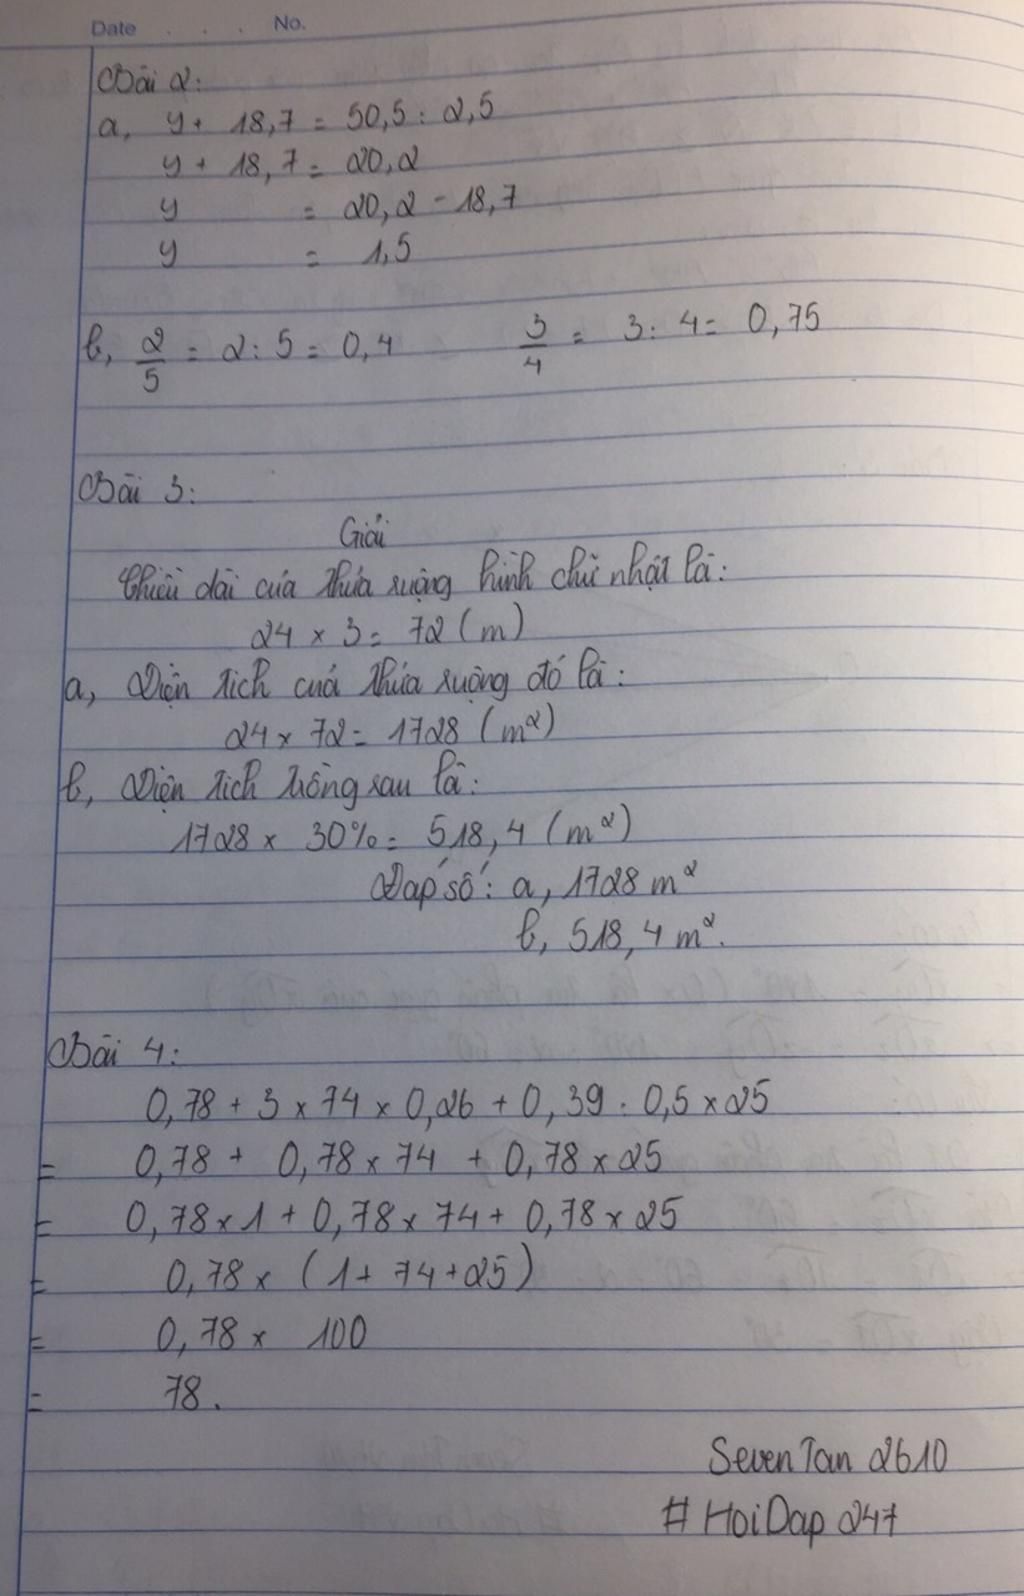 Date . . . No.
Bài 2:
a, y + 18,7 = 50,5 : 2,5
y + 18,7 = 20,2
y = 20,2 - 18,7
y = 1,5
b, 2/5 = 2 : 5 = 0,4 3/4 = 3 : 4 = 0,75
Bài 3:
Giải
Chiều dài của thửa ruộng hình chữ nhật là:
24 × 3 = 72 (m)
a, Diện tích của thửa ruộng đó là:
24 × 72 = 1728 (m²)
b, Diện tích trồng rau là:
1728 × 30% = 518,4 (m²)
Đáp số: a, 1728 m²
b, 518,4 m².
Bài 4:
0,78 + 3 × 74 × 0,26 + 0,39 : 0,5 × 25
= 0,78 + 0,78 × 74 + 0,78 × 25
= 0,78 × 1 + 0,78 × 74 + 0,78 × 25
= 0,78 × (1 + 74 + 25)
= 0,78 × 100
= 78.
SevenTan 2610
# HoiDap 247